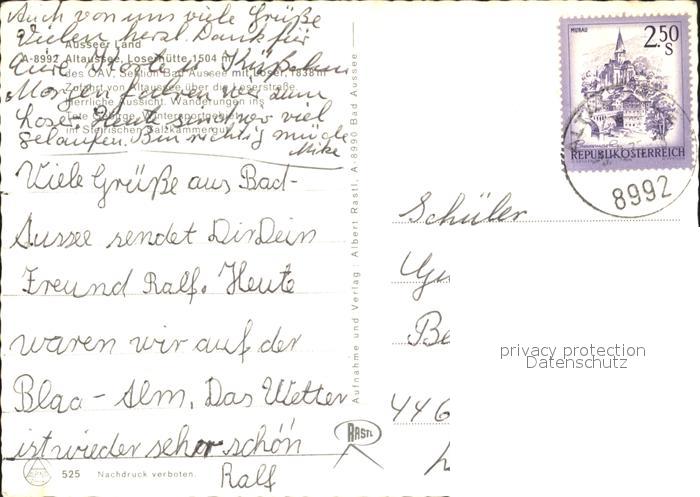 Auch von uns viele Grüße
Vielen herzl. Dank für
Eure Karte u.
Morgen fahren wir zum
Loser. Heute sind wir viel
gelaufen. Bin richtig müde
Mike
Ausseer Land
A-8992 Altaussee, Loserhütte, 1504 m
des ÖAV, Sektion Bad Aussee mit Loser, 1838 m
Zufahrt von Altaussee über die Loserstraße
herrliche Aussicht. Wanderungen ins
Tote Gebirge. Wintersportgebiet
im Steirischen Salzkammergut
Viele Grüße aus Bad-
Aussee sendet Dir Dein
Freund Ralf. Heute
waren wir auf der
Blaa - Alm. Das Wetter
ist wieder sehr schön
Ralf
525 Nachdruck verboten.
Aufnahme und Verlag: Albert Rastl, A-8990 Bad Aussee
RASTL
MURAU
2.50
S
REPUBLIK ÖSTERREICH
8992
Schüler
Gu
Be
446
privacy protection
Datenschutz